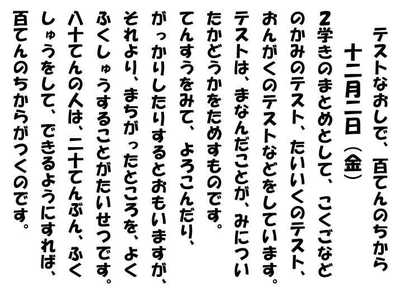 テストなおしで、百てんのちから
十二月二日（金）
２学きのまとめとして、こくごなど
のかみのテスト、たいいくのテスト、
おんがくのテストなどをしています。
テストは、まなんだことが、みについ
たかどうかをためすものです。
てんすうをみて、よろこんだり、
がっかりしたりするとおもいますが、
それより、まちがったところを、よく
ふくしゅうすることがたいせつです。
八十てんの人は、二十てんぶん、ふく
しゅうをして、できるようにすれば、
百てんのちからがつくのです。